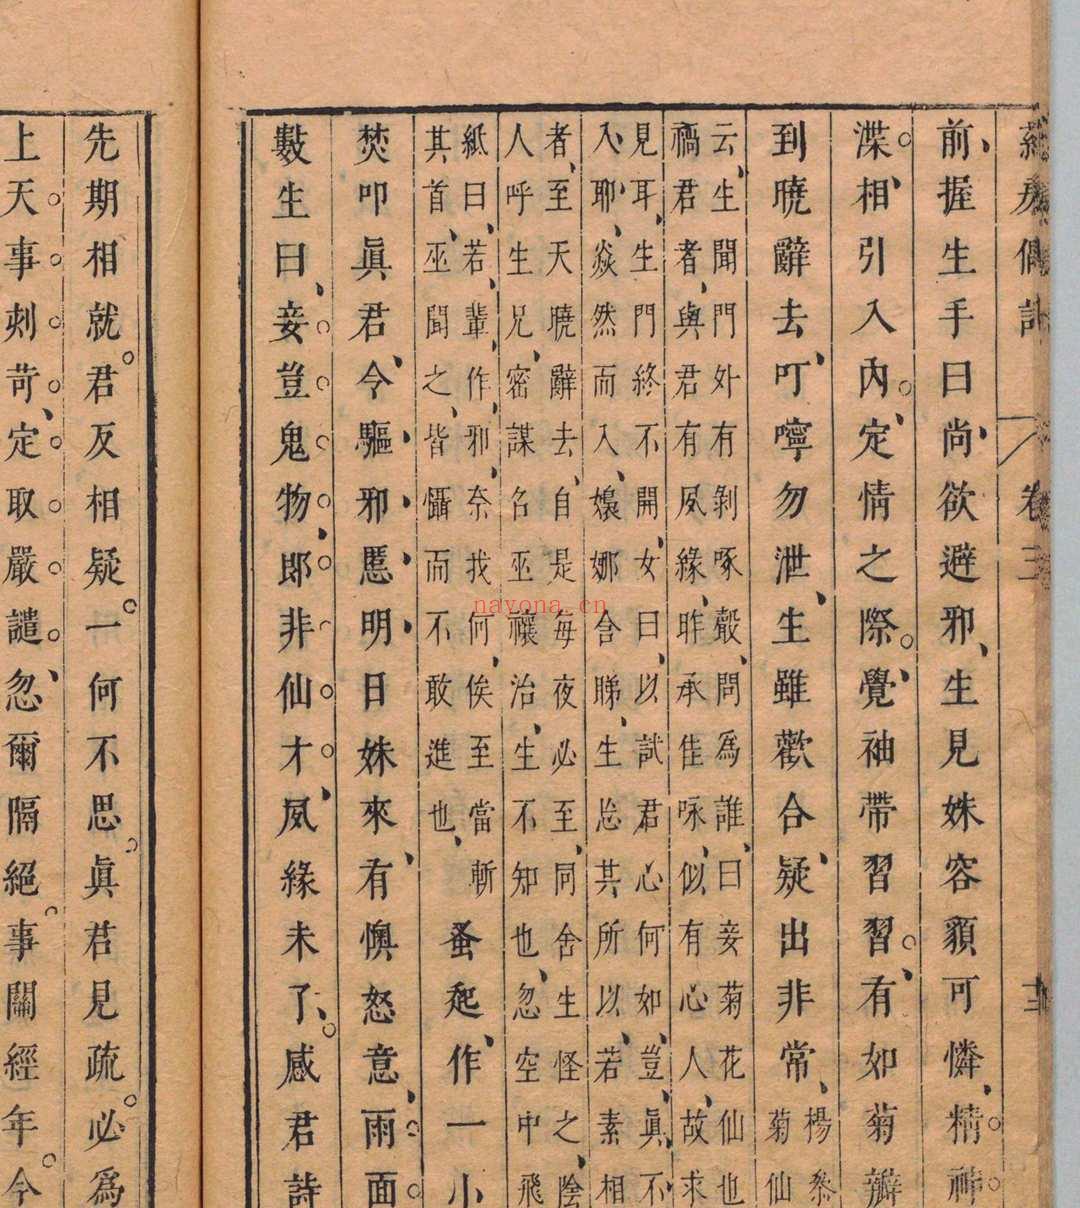 卷三
前握生手曰尚欲避邪生見姝容䫉可憐精神
渫相引入內定情之際覺袖帶習習有如菊瓣
到曉辭去叮嚀勿泄生雖歡合疑出非常
楊黎
菊仙
云生聞門外有剝啄聲問爲誰曰妾菊花仙也
禍君者與君有夙緣昨承佳咏似有心人故求
見耳生門終不開女曰以試君心何如豈眞不
入耶焱然而入嬝娜含睇生忘其所以若素相
者至天曉辭去自是每夜必至同舍生怪之陰
人呼生兄密謀名巫禳治生不知也忽空中飛
紙曰若輩作邪奈我何俟至當斬
其首巫聞之皆懾而不敢進也
蚤起作一小
焚叩眞君令驅邪慝明日姝來有懊怒意雨面
數生曰妾豈鬼物郎非仙才夙緣未了感君詩
先期相就君反相疑一何不思眞君見疏必爲
上天事刺苛定取嚴譴忽爾隔絕事關經年今
nayona.cn